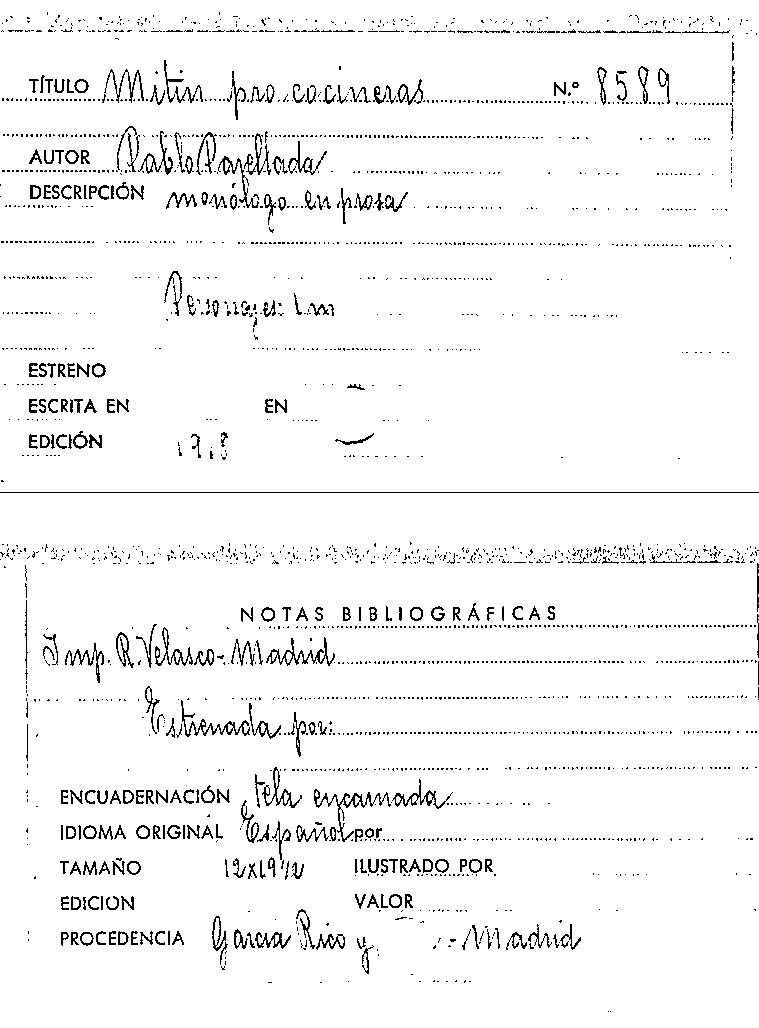 TÍTULO Mitin pro cocineras N.º 8589
AUTOR Pablo Parellada
DESCRIPCIÓN monólogo en prosa
Personajes: 1 m
ESTRENO
ESCRITA EN EN
EDICIÓN 1918
NOTAS BIBLIOGRÁFICAS
Imp. R. Velasco - Madrid
Estrenada por:
ENCUADERNACIÓN tela encarnada
IDIOMA ORIGINAL Español por
TAMAÑO 12x19 1/2 ILUSTRADO POR
EDICION VALOR
PROCEDENCIA García Rico y - Madrid